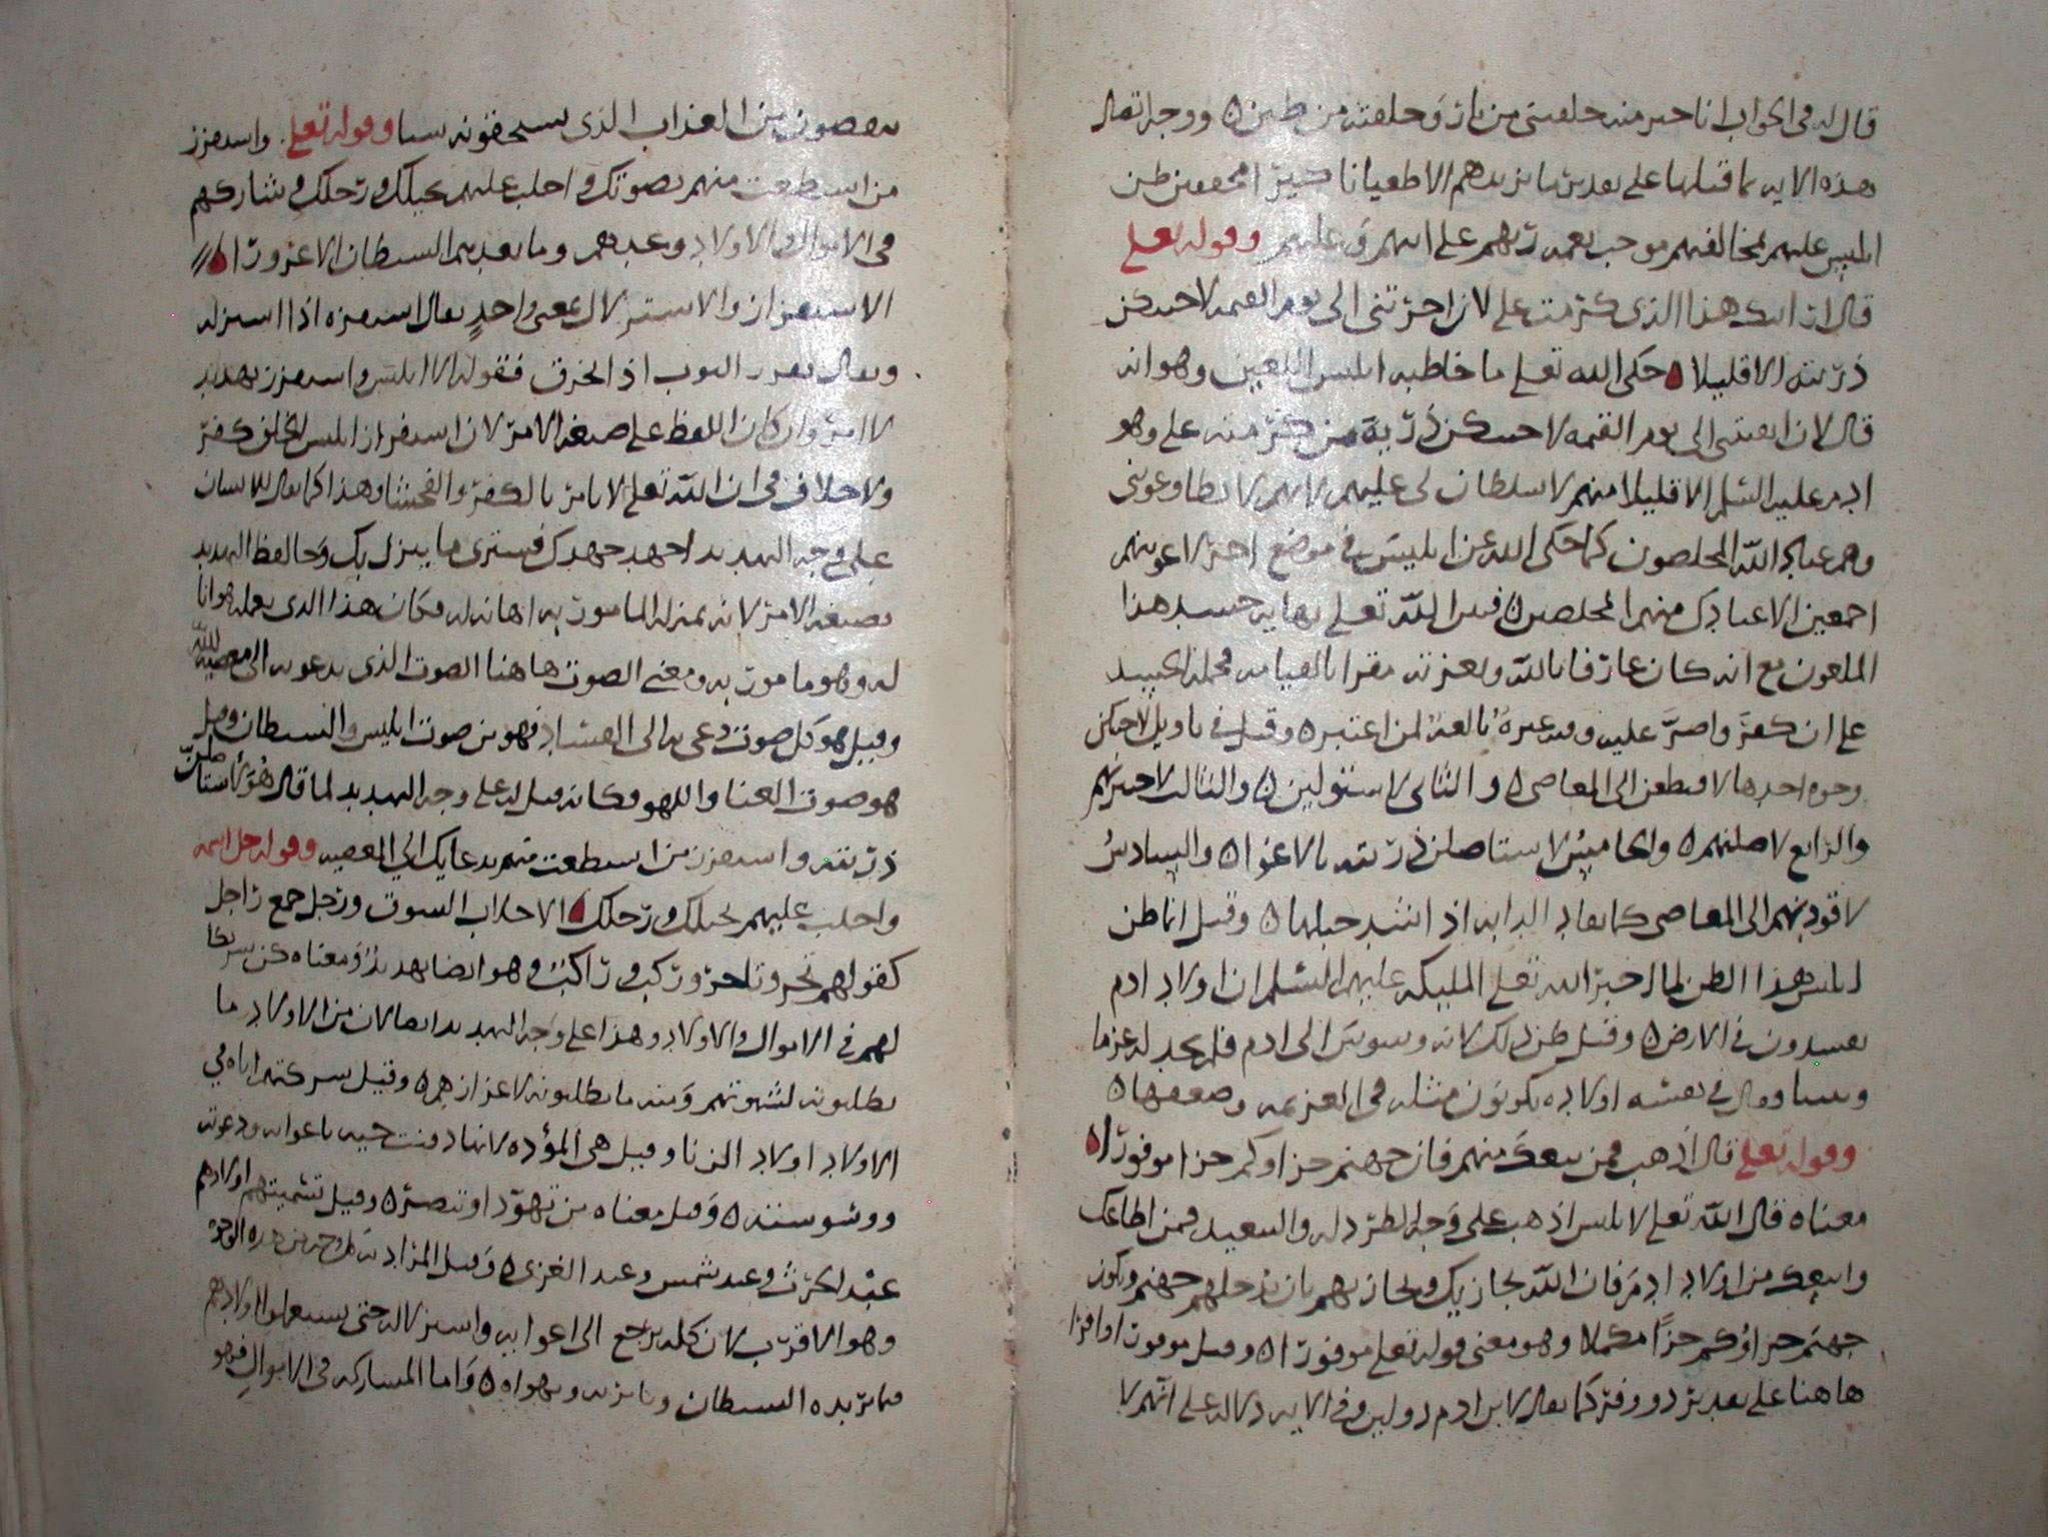 قال له في الجواب انا خير منه خلقتني من نار وخلقته من طين ووجه اتصال
هذه الايه بما قبلها على تقدير ما يزيدهم الا طغيانا كبيرا محققين ظن
ابليس عليهم بمخالفتهم موجب نعمه ربهم على ابيهم وعليهم وقوله تعلى
قال ارايتك هذا الذي كرمت علي لان اخرتني الى يوم القيمه لاحتنكن
ذريته الا قليلا حكى الله تعلى ما خاطبه ابليس اللعين وهو انه
قال لان ابقيتني الى يوم القيمه لاحتنكن ذرية من كرمته علي وهو
ادم عليه السلم الا قليلا منهم لا سلطان لي عليهم لانهم لا يطاوعوني
وهم عباد الله المخلصون كما حكى الله عن ابليس في موضع اخر لاغوينهم
اجمعين الا عبادك منهم المخلصين فبين الله تعلى نهايه حسد هذا
الملعون مع انه كان عارفا بالله وبعزته مقرا بالقيامه فحمله الحسد
على ان كفر واصر عليه وفيه عبرة بالغة لمن اعتبره وقيل في تاويل لاحتنكن
وجوه احدها لاقتطعن الى المعاصي والثاني لاستولين والثالث لاحتوينهم
والرابع لاضلنهم والخامس لاستاصلن ذريته بالاغوا والسادس
لاقودنهم الى المعاصي كما تقاد الدابه اذا شد حبلها وقيل انما ظن
ابليس هذا الظن لما اخبر الله تعلى المليكه عليهم السلم ان اولاد ادم
يفسدون في الارض وقيل ظن ذلك لانه وسوس الى ادم فلم يجد له عزما
وقال في نفسه اولاده يكونون مثله في العزيمه وضعفها
وقوله تعلى قال اذهب فمن تبعك منهم فان جهنم جزاوكم جزا موفورا
معناه قال الله تعلى لابليس اذهب على وجه الطرد له والتبعيد فمن اطاعك
واتبعك من اولاد ادم فان الله يجازيك ويجازيهم بان يدخلهم جهنم ويكون
جهنم جزاؤكم جزاً مكملا وهو معنى قوله تعلى موفورا وقيل موفورا وافرا
هاهنا على تقدير ذو وفر كما يقال لابن ادم ذو لبن وفي الايه دلاله على انهم لا
ينقصون من العذاب الذي يستحقونه شيا وقوله تعلى واستفزز
من استطعت منهم بصوتك واجلب عليهم بخيلك ورجلك وشاركهم
في الاموال والاولاد وعدهم وما يعدهم الشيطان الا غرورا
الاستفزاز والاستزلال بمعنى واحد يقال استفزه اذا استزله
ويقال تفزز الثوب اذا تخرق فقوله لابليس واستفزز تهديد
لا امر وان كان اللفظ على صيغه الامر لان استفزاز ابليس للخلق كفر
ولا خلاف في ان الله تعلى لا يامر بالكفر والفحشا وهذا كما يقال للانسان
على وجه التهديد اجهد جهدك فسترى ما ينزل بك وجا لفظ التهديد
بصيغه الامر لانه بمنزله المامور به اهانه له فكان هذا الذي يعمله هوانا
له وهو مامور به ومعنى الصوت هاهنا الصوت الذي يدعو به الى معصيه الله
وقيل هو كل صوت دعي به الى الفساد فهو من صوت ابليس والشيطان وقيل
هو صوت الغنا واللهو فكانه قيل له على وجه التهديد لما قال هو لاستاصلن
ذريته واستفزز من استطعت منهم بدعايك الى المعصيه وقوله جل اسمه
واجلب عليهم بخيلك ورجلك الاجلاب السوق ورجل جمع راجل
كقولهم تجر وتاجر وركب وراكب وهو ايضا تهديد ومعناه كن شريكا
لهم في الاموال والاولاد وهذا على وجه التهديد ايضا لان من الاولاد ما
يطلبونه لشهوتهم ومنه ما يطلبونه لاعزازهم وقيل شركتهم اياه في
الاولاد اولاد الزنا وقيل هي المؤده لانها دفنت حيه باغوايه ودعوته
ووسوسته وقيل معناه من تهود او تنصر وقيل تسميتهم اولادهم
عبد الحرث وعبد شمس وعبد العزى وقيل المراد به كل وجه من هذه الوجوه
وهو الاقرب لان كله يرجع الى اغوايه واستزلاله حتى يستعملوا اولادهم
فيما يريده الشيطان وما يزينه ويهواه واما المشاركه في الاموال فهو